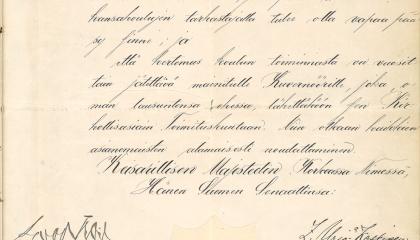 kansakoulujen tarkastajalla tulee olla vapaa pää-
sy sinne; ja
että kertomus koulun toiminnasta on vuosit-
tain jätettävä mainitulle Kuvernöörille, joka, o-
man lausuntonsa ohessa, lähettäköön sen Kir-
kollisasiain Toimituskuntaan. Niin otkaan kaikkien
asianomaisten alamaisesti noudattaminen.
Keisarillisen Majesteetin Korkeassa Nimessä,
Hänen Suomen Senaattinsa: